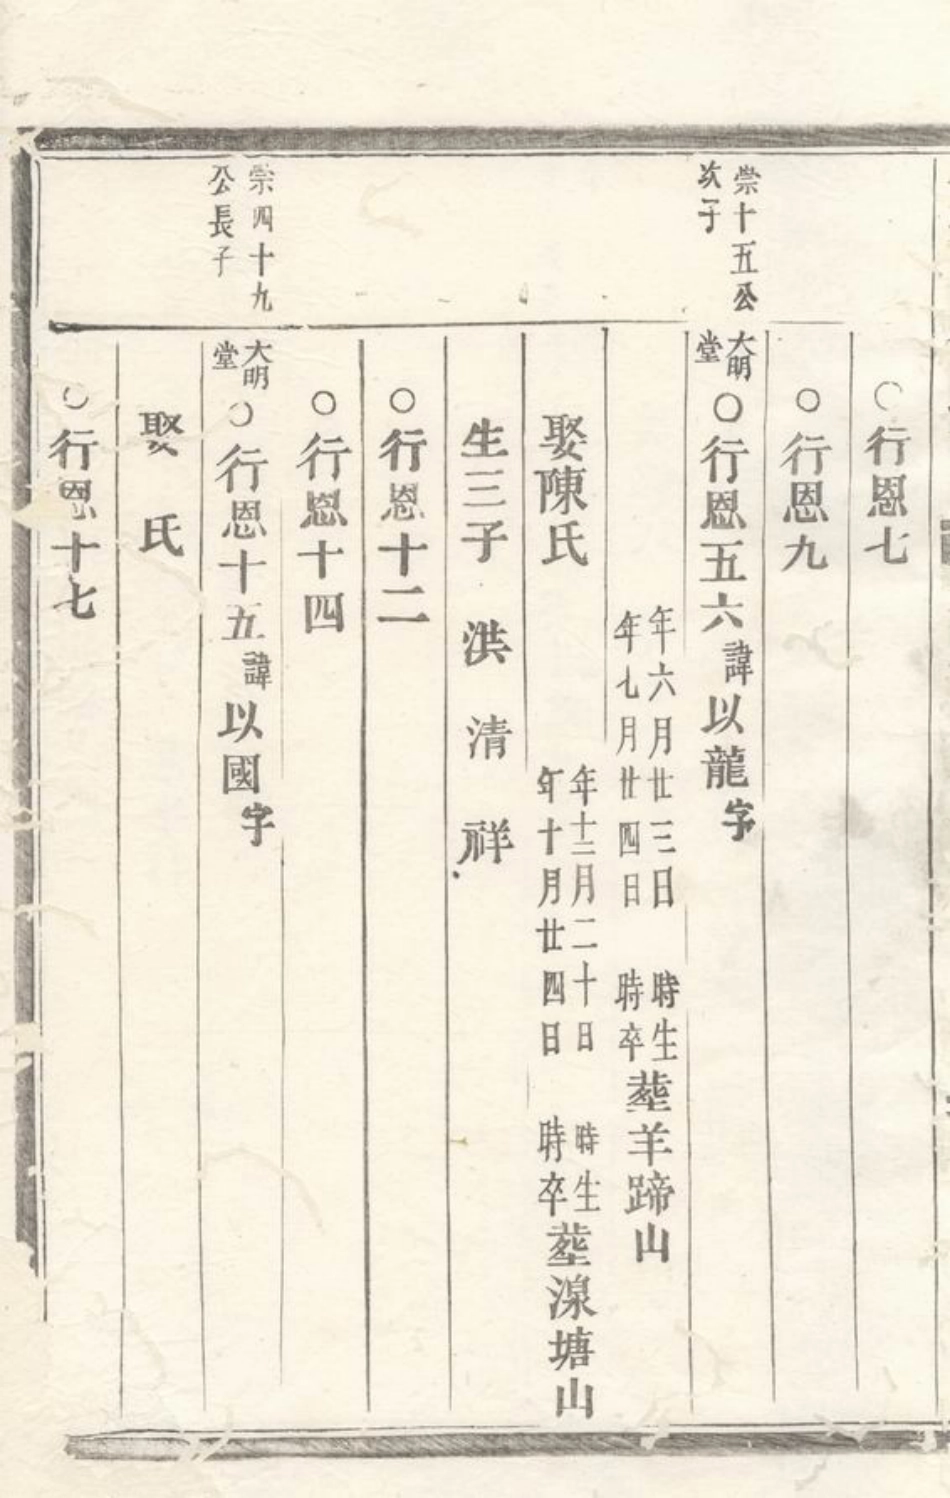 ○行恩七
○行恩九
崇十五公
次子
大明
堂
○行恩五六諱以龍字
年六月廿三日　時生
年七月廿四日　時卒
塟羊蹄山
娶陳氏
年十二月二十日　時生
年十月廿四日　時卒
塟湶塘山
生三子　洪　清　祥
○行恩十二
○行恩十四
崇四十九
公長子
大明
堂
○行恩十五諱以國字
娶　氏
○行恩十七